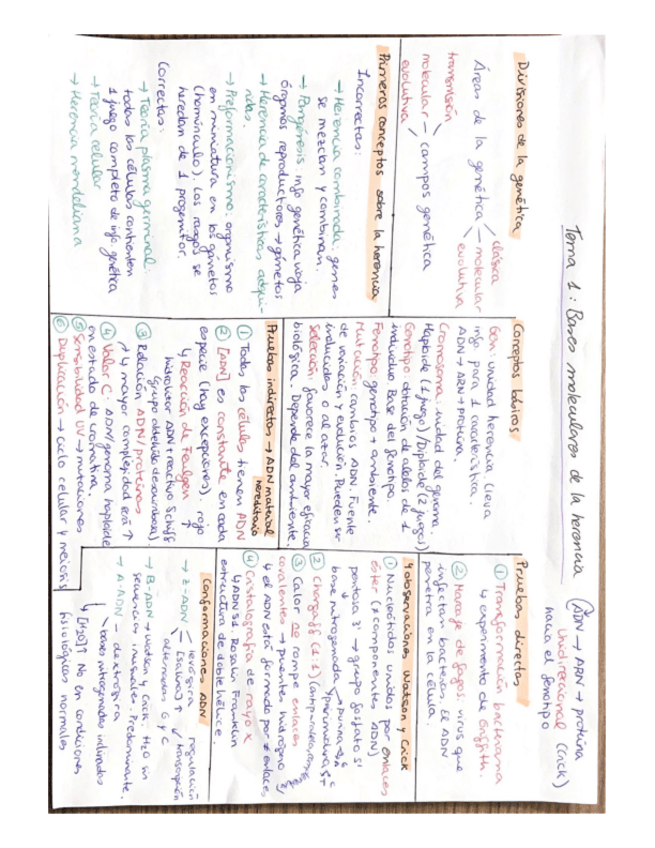 Tema 1: Bases moleculares de la herencia (ADN → ARN → proteína
Unidireccional (Crick)
hacia el fenotipo
Divisiones de la genética
Áreas de la genética
clásica
molecular
evolutiva
transmisión
molecular — campos genética
evolutiva
Primeros conceptos sobre la herencia
Incorrectas:
→ Herencia combinada: genes
se mezclan y combinan.
→ Pangénesis: info genética viaja
órganos reproductores → gametos
→ Herencia de características adqui-
ridas.
→ Preformacionismo: organismo
en miniatura en los gametos
(homínculo). Los rasgos se
heredan de 1 progenitor.
Correctas:
→ Teoría plasma germinal:
todas las células contienen
1 juego completo de info genética
→ Teoría celular
→ Herencia mendeliana
Conceptos básicos
Gen: unidad herencia lleva
info para 1 característica.
ADN → ARN → Proteína.
Cromosoma: unidad del genoma.
Haploide (1 juego)/Diploide (2 juegos)
Genotipo: dotación de alelos de 1
individuo. Base del fenotipo.
Fenotipo: genotipo + ambiente.
Mutación: cambios ADN. Fuente
de variación y evolución. Pueden ser
inducidas o al azar.
Selección: favorece la mayor eficacia
biológica. Depende del ambiente.
Pruebas indirectas → ADN material
hereditario
① Todas las células tienen ADN
② [ADN] es constante en cada
especie (hay excepciones). rojo
↳ Reacción de Feulgen ↑
hidrolizar ADN + reactivo Schiff
③ Relación ADN/proteínas
↳ mayor complejidad
④ Valor C: ADN/genoma haploide
en estado de cromatina.
⑤ Sensibilidad UV → mutaciones
⑥ Duplicación → ciclo celular y meiosis
Pruebas directas
① Transformación bacteriana
↳ experimento de Griffith.
② Marcaje de fagos: virus que
infectan bacterias. El ADN
penetra en la célula.
4 observaciones Watson y Crick
① Nucleótidos unidos por enlaces
éster (3 componentes ADN)
pentosa 3' → grupo fosfato 5'
base nitrogenada
② Chargaff (1:1)
③ Calor no rompe enlaces
covalentes → puentes hidrógeno
↳ el ADN está formado por ≠ enlaces
④ Cristalografía de rayos X
Rosalin Franklin
estructura de doble hélice.
Conformaciones ADN
→ Z-ADN
levógira
[salina] ↑
alternadas G y C
regulación
transcripción
→ B-ADN → Watson y Crick: H₂O sin
secuencias inusuales. Predominante.
→ A-ADN - dextrógira
bases nitrogenadas inclinadas
↓ [H2O]? No en condiciones
fisiológicas normales